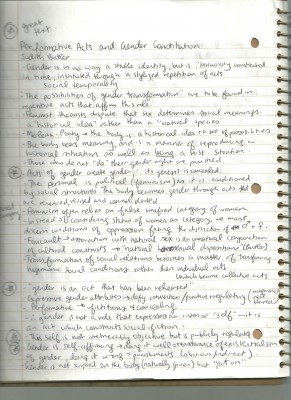 great
text
Performative Acts and Gender Constitution
Judith Butler
Gender is in no way a stable identity, but is "tenuously constituted
in time, instituted through a stylized repetition of acts.
Social temporality
The possibilities of gender transformation are to be found in
repetitive acts that affirm this
Feminist theorists dispute that sex determines social meanings
a "historical idea" rather than a "natural species"
Merleau-Ponty → the body is a historical idea + set of possibilities
The body bears meaning, and is a manner of reproducing
historical situation as well as being a situation
Those who do not "do" their gender right are punished.
Acts of gender create gender, its genesis is concealed.
The personal is political (feminism) as it is conditioned
by social structures. The body becomes gender through acts
renewed, revised and consolidated
Feminism often relies on false unified category of women
Instead of considering status of women as category, we must
discern conditions of oppression
Foucault → association with natural sex is an unnatural conjunction
of cultural constructs in natural
Transformation of social relations becomes a matter of transforming
hegemonic social conditions rather than individual acts
which become collective acts
"gender is an act that has been rehearsed"
Expressive gender attributes →
Performative →
∴ gender is not a role that expresses an interior "self" – it is
an act which constructs social fiction.
The self is not irretrievably but is publicly regulated
Gender is self-affirming → doing it well → reassurance of essentialism
of gender, doing it wrong → punishments (obvious/indirect).
Gender is not inscribed on the body (naturally given) but "put on"